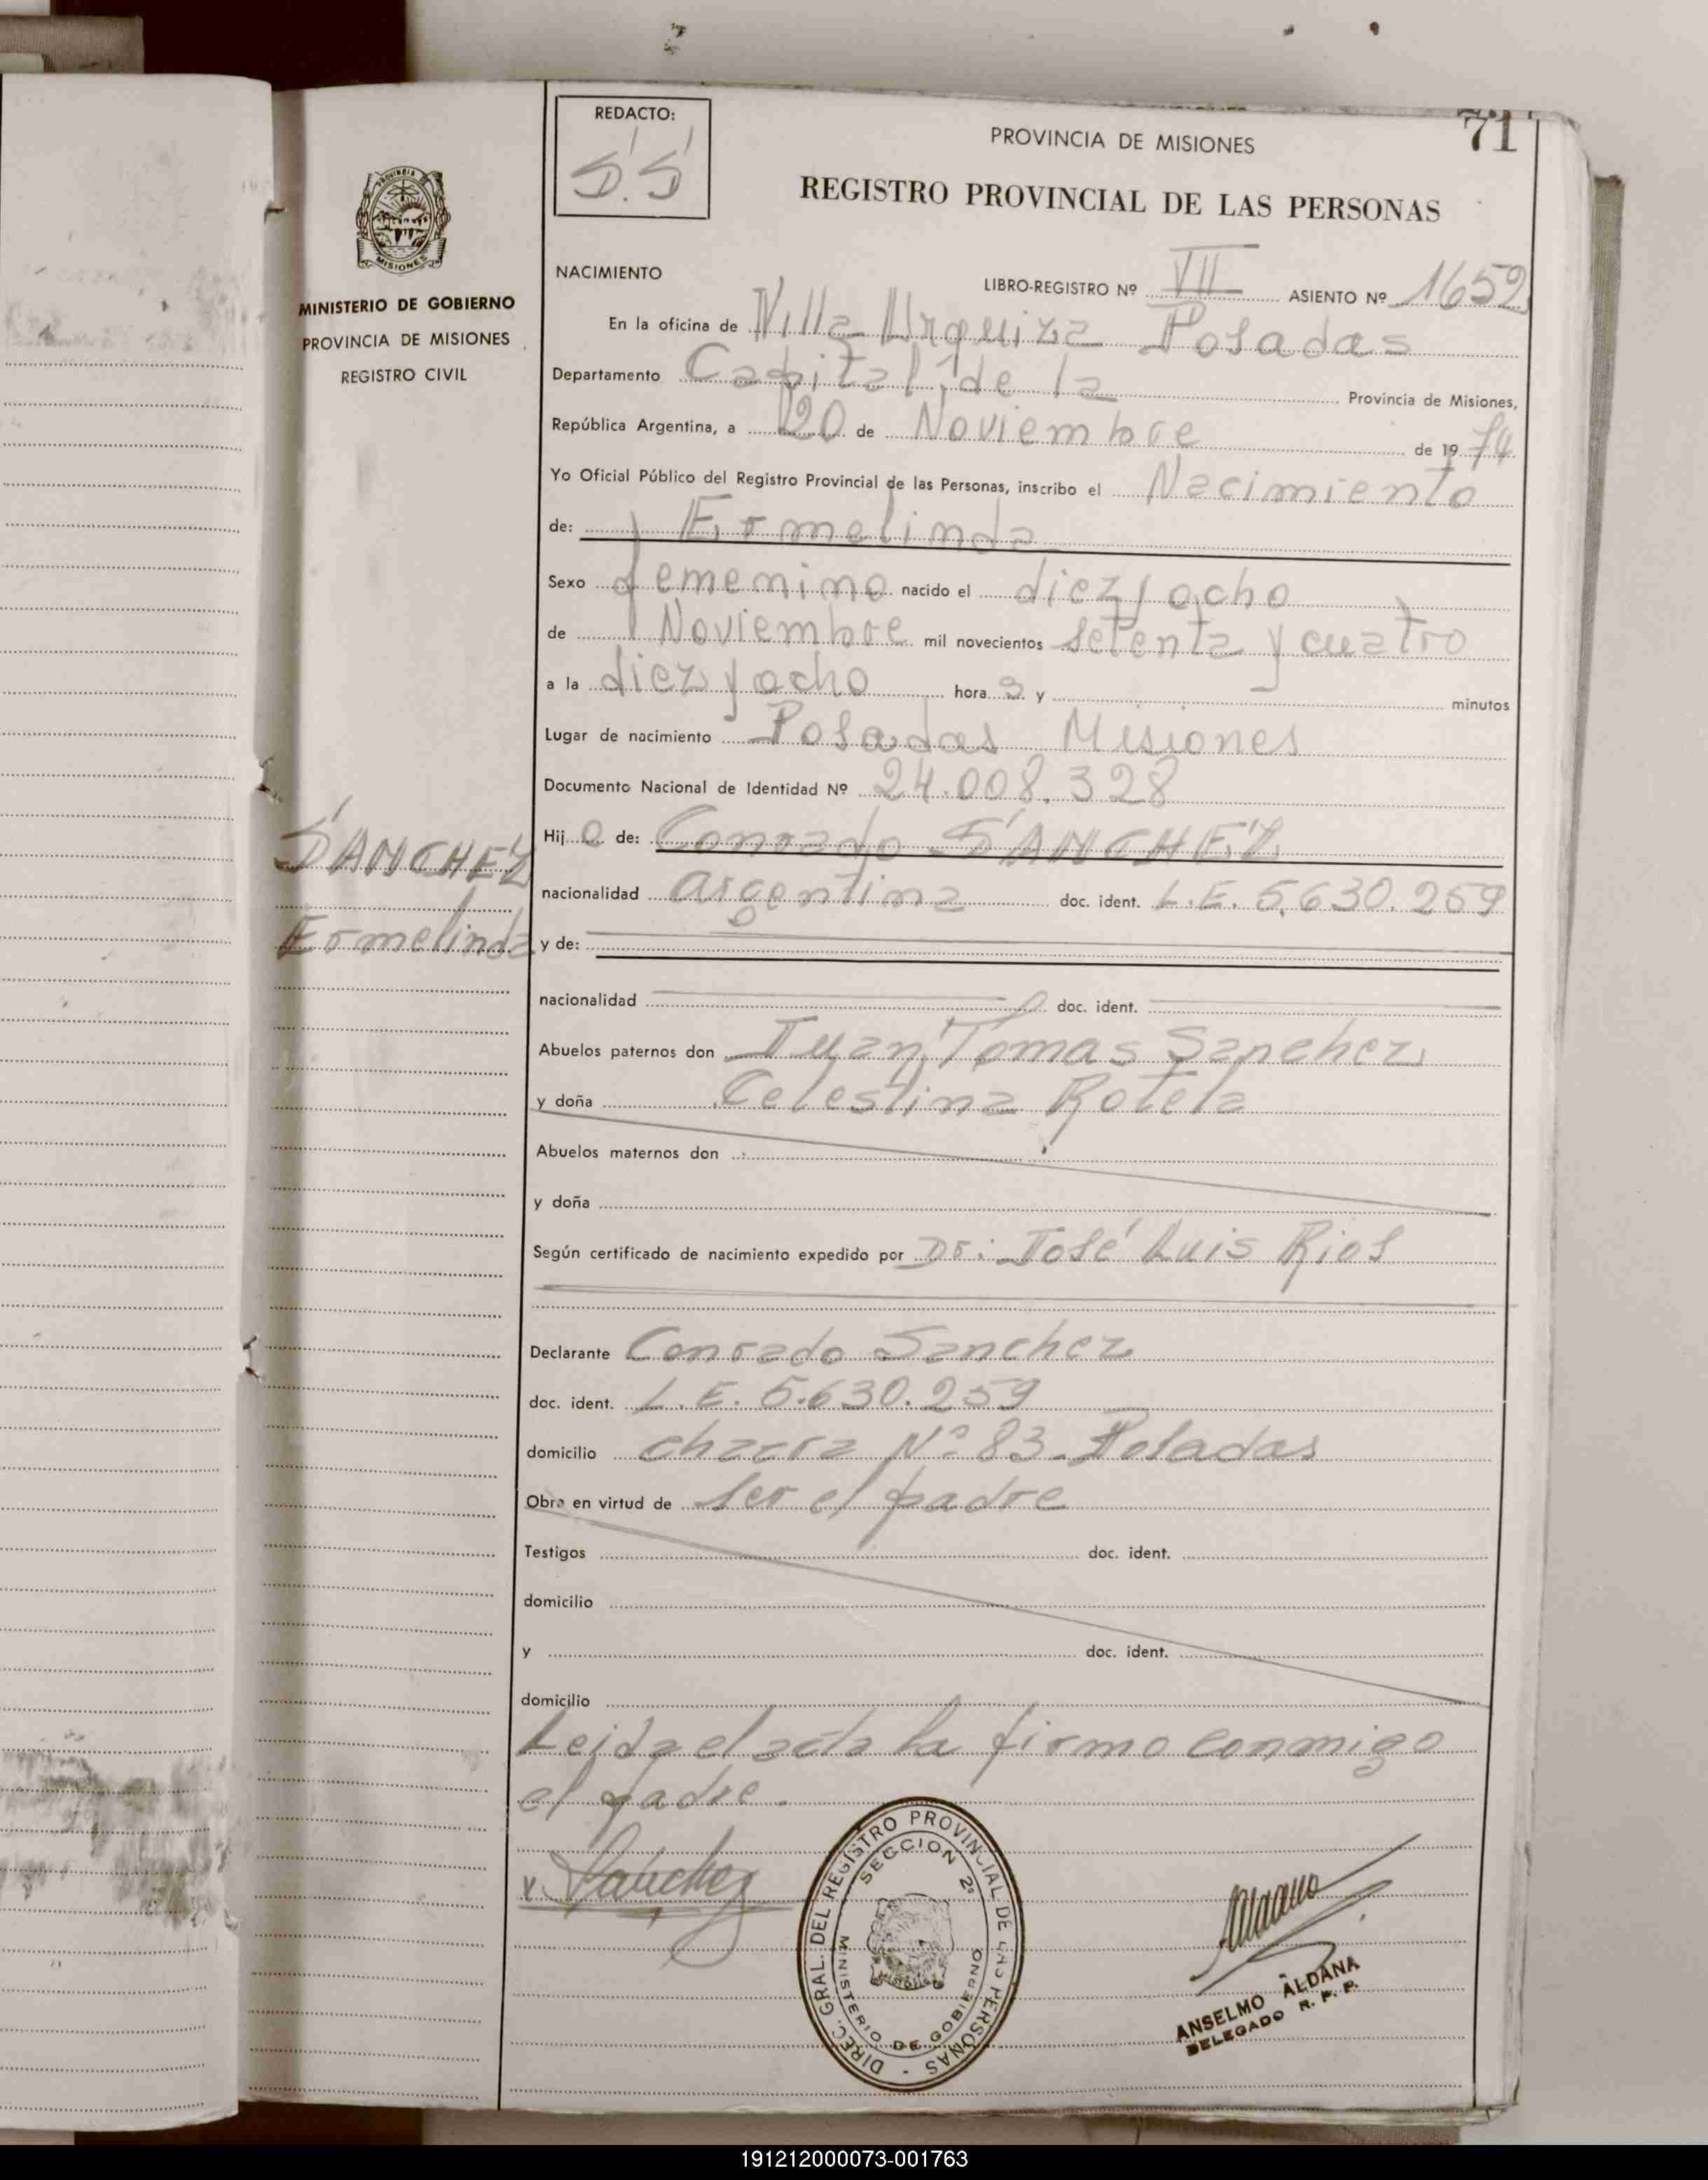 71
REDACTO:
S.S
PROVINCIA DE MISIONES
REGISTRO PROVINCIAL DE LAS PERSONAS
PROVINCIA DE
MISIONES
MINISTERIO DE GOBIERNO
PROVINCIA DE MISIONES
REGISTRO CIVIL
SANCHEZ
Ermelinda
NACIMIENTO LIBRO-REGISTRO Nº VII ASIENTO Nº 1652
En la oficina de Villa Urquiza Posadas
Departamento Capital de la Provincia de Misiones,
República Argentina, a 20 de Noviembre de 1974
Yo Oficial Público del Registro Provincial de las Personas, inscribo el Nacimiento
de: Ermelinda
Sexo femenino nacido el diez y ocho
de Noviembre mil novecientos setenta y cuatro
a la diez y ocho hora s y minutos
Lugar de nacimiento Posadas Misiones
Documento Nacional de Identidad Nº 24.008.328
Hij a de: Conrado SANCHEZ
nacionalidad argentina doc. ident. L.E. 5.630.259
y de:
nacionalidad doc. ident.
Abuelos paternos don Juan Tomas Sanchez
y doña Celestina Rotela
Abuelos maternos don
y doña
Según certificado de nacimiento expedido por Dr: José Luis Rios
Declarante Conrado Sanchez
doc. ident. L.E. 5.630.259
domicilio chacra Nº 83 - Posadas
Obra en virtud de ser el padre
Testigos doc. ident.
domicilio
y doc. ident.
domicilio
Leida el acta la firmo conmigo
el padre.
Sanchez
DIREC. GRAL. DEL REGISTRO PROVINCIAL DE LAS PERSONAS -
SECCION 2º
MINISTERIO DE GOBIERNO
ANSELMO ALDANA
DELEGADO R. P. P.
191212000073-001763